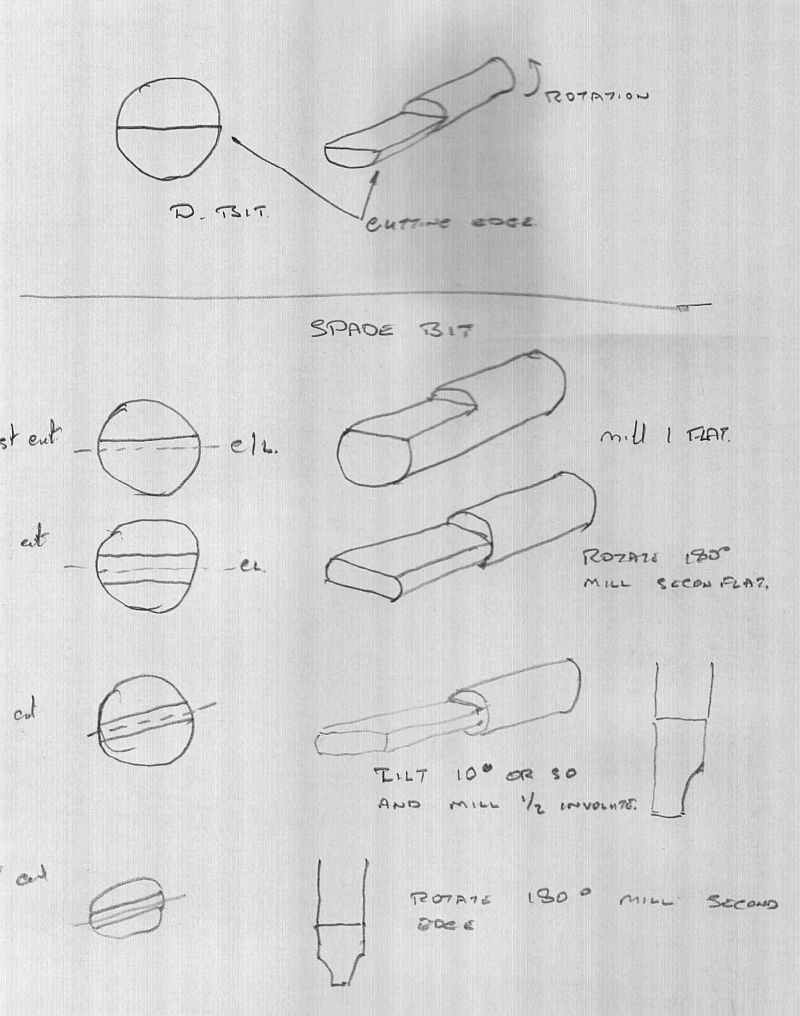 ROTATION
D. BIT.
CUTTING EDGE
SPADE BIT
st cut
C/L.
mill 1 FLAT.
cut
CL.
ROTATE 180°
MILL SECON FLAT.
cut
TILT 10° OR SO
AND MILL 1/2 INVOLUTE.
cut
ROTATE 180° MILL SECOND
EDGE